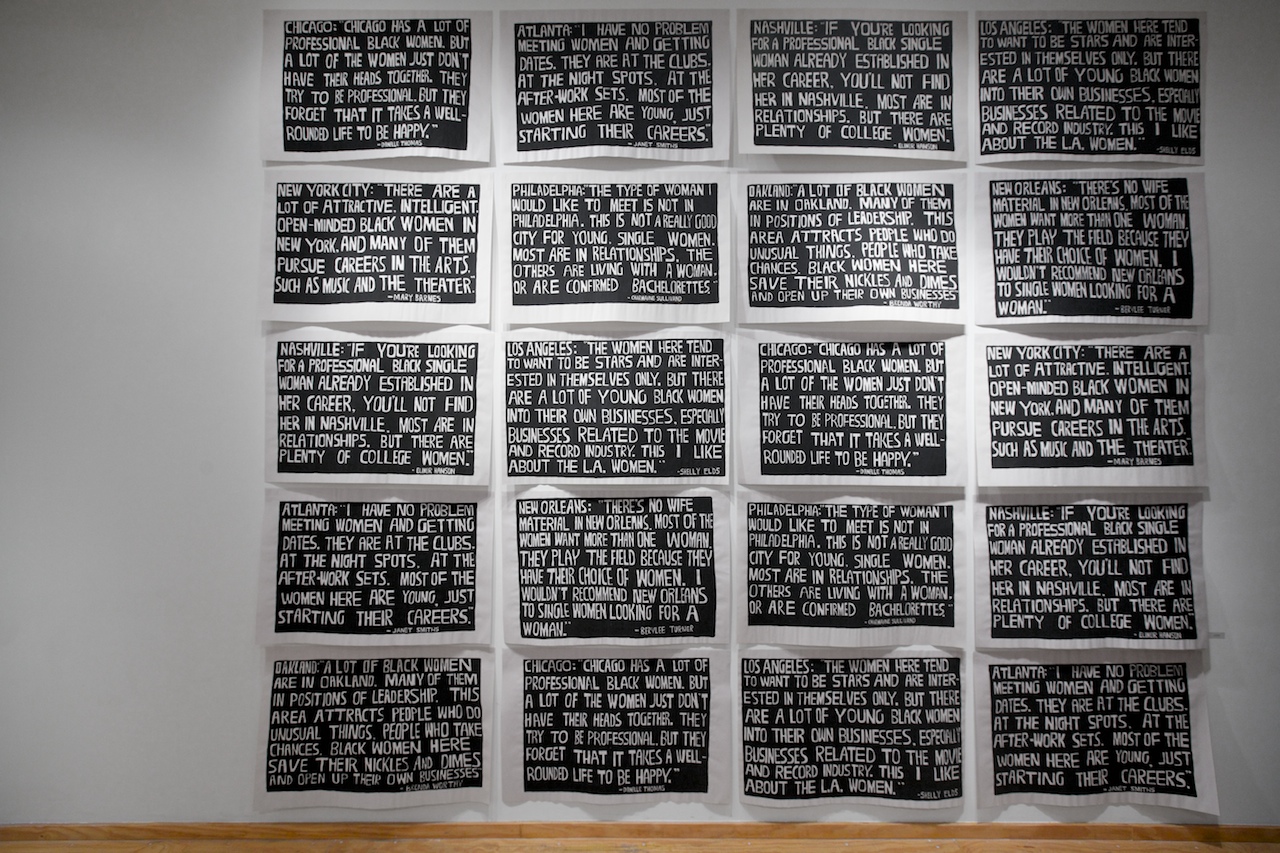 CHICAGO: "CHICAGO HAS A LOT OF
PROFESSIONAL BLACK WOMEN. BUT
A LOT OF THE WOMEN JUST DON'T
HAVE THEIR HEADS TOGETHER. THEY
TRY TO BE PROFESSIONAL, BUT THEY
FORGET THAT IT TAKES A WELL-
ROUNDED LIFE TO BE HAPPY."
-DANIELLE THOMAS
ATLANTA: "I HAVE NO PROBLEM
MEETING WOMEN AND GETTING
DATES. THEY ARE AT THE CLUBS.
AT THE NIGHT SPOTS. AT THE
AFTER-WORK SETS. MOST OF THE
WOMEN HERE ARE YOUNG, JUST
STARTING THEIR CAREERS."
-JANET SMITHS
NASHVILLE: "IF YOU'RE LOOKING
FOR A PROFESSIONAL BLACK SINGLE
WOMAN ALREADY ESTABLISHED IN
HER CAREER, YOU'LL NOT FIND
HER IN NASHVILLE. MOST ARE IN
RELATIONSHIPS. BUT THERE ARE
PLENTY OF COLLEGE WOMEN."
HANSON
LOS ANGELES: "THE WOMEN HERE TEND
TO WANT TO BE STARS AND ARE INTER-
ESTED IN THEMSELVES ONLY. BUT THERE
ARE A LOT OF YOUNG BLACK WOMEN
INTO THEIR OWN BUSINESSES, ESPECIALLY
BUSINESSES RELATED TO THE MOVIE
AND RECORD INDUSTRY. THIS I LIKE
ABOUT THE L.A. WOMEN."
-SHELLY ELDS
NEW YORK CITY: "THERE ARE A
LOT OF ATTRACTIVE, INTELLIGENT,
OPEN-MINDED BLACK WOMEN IN
NEW YORK. AND MANY OF THEM
PURSUE CAREERS IN THE ARTS.
SUCH AS MUSIC AND THE THEATER."
-MARY BARNES
PHILADELPHIA: "THE TYPE OF WOMAN I
WOULD LIKE TO MEET IS NOT IN
PHILADELPHIA. THIS IS NOT A REALLY GOOD
CITY FOR YOUNG, SINGLE WOMEN.
MOST ARE IN RELATIONSHIPS. THE
OTHERS ARE LIVING WITH A WOMAN.
OR ARE CONFIRMED BACHELORETTES"
-CHARMAINE SULLIVAND
OAKLAND: "A LOT OF BLACK WOMEN
ARE IN OAKLAND. MANY OF THEM
IN POSITIONS OF LEADERSHIP. THIS
AREA ATTRACTS PEOPLE WHO DO
UNUSUAL THINGS, PEOPLE WHO TAKE
CHANCES. BLACK WOMEN HERE
SAVE THEIR NICKLES AND DIMES
AND OPEN UP THEIR OWN BUSINESSES
-BRENDA WORTHY
NEW ORLEANS: "THERE'S NO WIFE
MATERIAL IN NEW ORLEANS, MOST OF THE
WOMEN WANT MORE THAN ONE WOMAN.
THEY PLAY THE FIELD BECAUSE THEY
HAVE THEIR CHOICE OF WOMEN. I
WOULDN'T RECOMMEND NEW ORLEANS
TO SINGLE WOMEN LOOKING FOR A
WOMAN."
-BERYLEE TURNER
NASHVILLE: "IF YOU'RE LOOKING
FOR A PROFESSIONAL BLACK SINGLE
WOMAN ALREADY ESTABLISHED IN
HER CAREER, YOU'LL NOT FIND
HER IN NASHVILLE. MOST ARE IN
RELATIONSHIPS. BUT THERE ARE
PLENTY OF COLLEGE WOMEN."
HANSON
LOS ANGELES: "THE WOMEN HERE TEND
TO WANT TO BE STARS AND ARE INTER-
ESTED IN THEMSELVES ONLY. BUT THERE
ARE A LOT OF YOUNG BLACK WOMEN
INTO THEIR OWN BUSINESSES, ESPECIALLY
BUSINESSES RELATED TO THE MOVIE
AND RECORD INDUSTRY. THIS I LIKE
ABOUT THE L.A. WOMEN."
-SHELLY ELDS
CHICAGO: "CHICAGO HAS A LOT OF
PROFESSIONAL BLACK WOMEN. BUT
A LOT OF THE WOMEN JUST DON'T
HAVE THEIR HEADS TOGETHER. THEY
TRY TO BE PROFESSIONAL, BUT THEY
FORGET THAT IT TAKES A WELL-
ROUNDED LIFE TO BE HAPPY."
-DANIELLE THOMAS
NEW YORK CITY: "THERE ARE A
LOT OF ATTRACTIVE, INTELLIGENT,
OPEN-MINDED BLACK WOMEN IN
NEW YORK. AND MANY OF THEM
PURSUE CAREERS IN THE ARTS.
SUCH AS MUSIC AND THE THEATER."
-MARY BARNES
ATLANTA: "I HAVE NO PROBLEM
MEETING WOMEN AND GETTING
DATES. THEY ARE AT THE CLUBS.
AT THE NIGHT SPOTS. AT THE
AFTER-WORK SETS. MOST OF THE
WOMEN HERE ARE YOUNG, JUST
STARTING THEIR CAREERS."
-JANET SMITHS
NEW ORLEANS: "THERE'S NO WIFE
MATERIAL IN NEW ORLEANS, MOST OF THE
WOMEN WANT MORE THAN ONE WOMAN.
THEY PLAY THE FIELD BECAUSE THEY
HAVE THEIR CHOICE OF WOMEN. I
WOULDN'T RECOMMEND NEW ORLEANS
TO SINGLE WOMEN LOOKING FOR A
WOMAN."
-BERYLEE TURNER
PHILADELPHIA: "THE TYPE OF WOMAN I
WOULD LIKE TO MEET IS NOT IN
PHILADELPHIA. THIS IS NOT A REALLY GOOD
CITY FOR YOUNG, SINGLE WOMEN.
MOST ARE IN RELATIONSHIPS. THE
OTHERS ARE LIVING WITH A WOMAN.
OR ARE CONFIRMED BACHELORETTES"
-CHARMAINE SULLIVAND
NASHVILLE: "IF YOU'RE LOOKING
FOR A PROFESSIONAL BLACK SINGLE
WOMAN ALREADY ESTABLISHED IN
HER CAREER, YOU'LL NOT FIND
HER IN NASHVILLE. MOST ARE IN
RELATIONSHIPS. BUT THERE ARE
PLENTY OF COLLEGE WOMEN."
HANSON
OAKLAND: "A LOT OF BLACK WOMEN
ARE IN OAKLAND. MANY OF THEM
IN POSITIONS OF LEADERSHIP. THIS
AREA ATTRACTS PEOPLE WHO DO
UNUSUAL THINGS, PEOPLE WHO TAKE
CHANCES. BLACK WOMEN HERE
SAVE THEIR NICKLES AND DIMES
AND OPEN UP THEIR OWN BUSINESSES
-BRENDA WORTHY
CHICAGO: "CHICAGO HAS A LOT OF
PROFESSIONAL BLACK WOMEN. BUT
A LOT OF THE WOMEN JUST DON'T
HAVE THEIR HEADS TOGETHER. THEY
TRY TO BE PROFESSIONAL, BUT THEY
FORGET THAT IT TAKES A WELL-
ROUNDED LIFE TO BE HAPPY."
-DANIELLE THOMAS
LOS ANGELES: "THE WOMEN HERE TEND
TO WANT TO BE STARS AND ARE INTER-
ESTED IN THEMSELVES ONLY. BUT THERE
ARE A LOT OF YOUNG BLACK WOMEN
INTO THEIR OWN BUSINESSES, ESPECIALLY
BUSINESSES RELATED TO THE MOVIE
AND RECORD INDUSTRY. THIS I LIKE
ABOUT THE L.A. WOMEN."
-SHELLY ELDS
ATLANTA: "I HAVE NO PROBLEM
MEETING WOMEN AND GETTING
DATES. THEY ARE AT THE CLUBS.
AT THE NIGHT SPOTS. AT THE
AFTER-WORK SETS. MOST OF THE
WOMEN HERE ARE YOUNG, JUST
STARTING THEIR CAREERS."
-JANET SMITHS